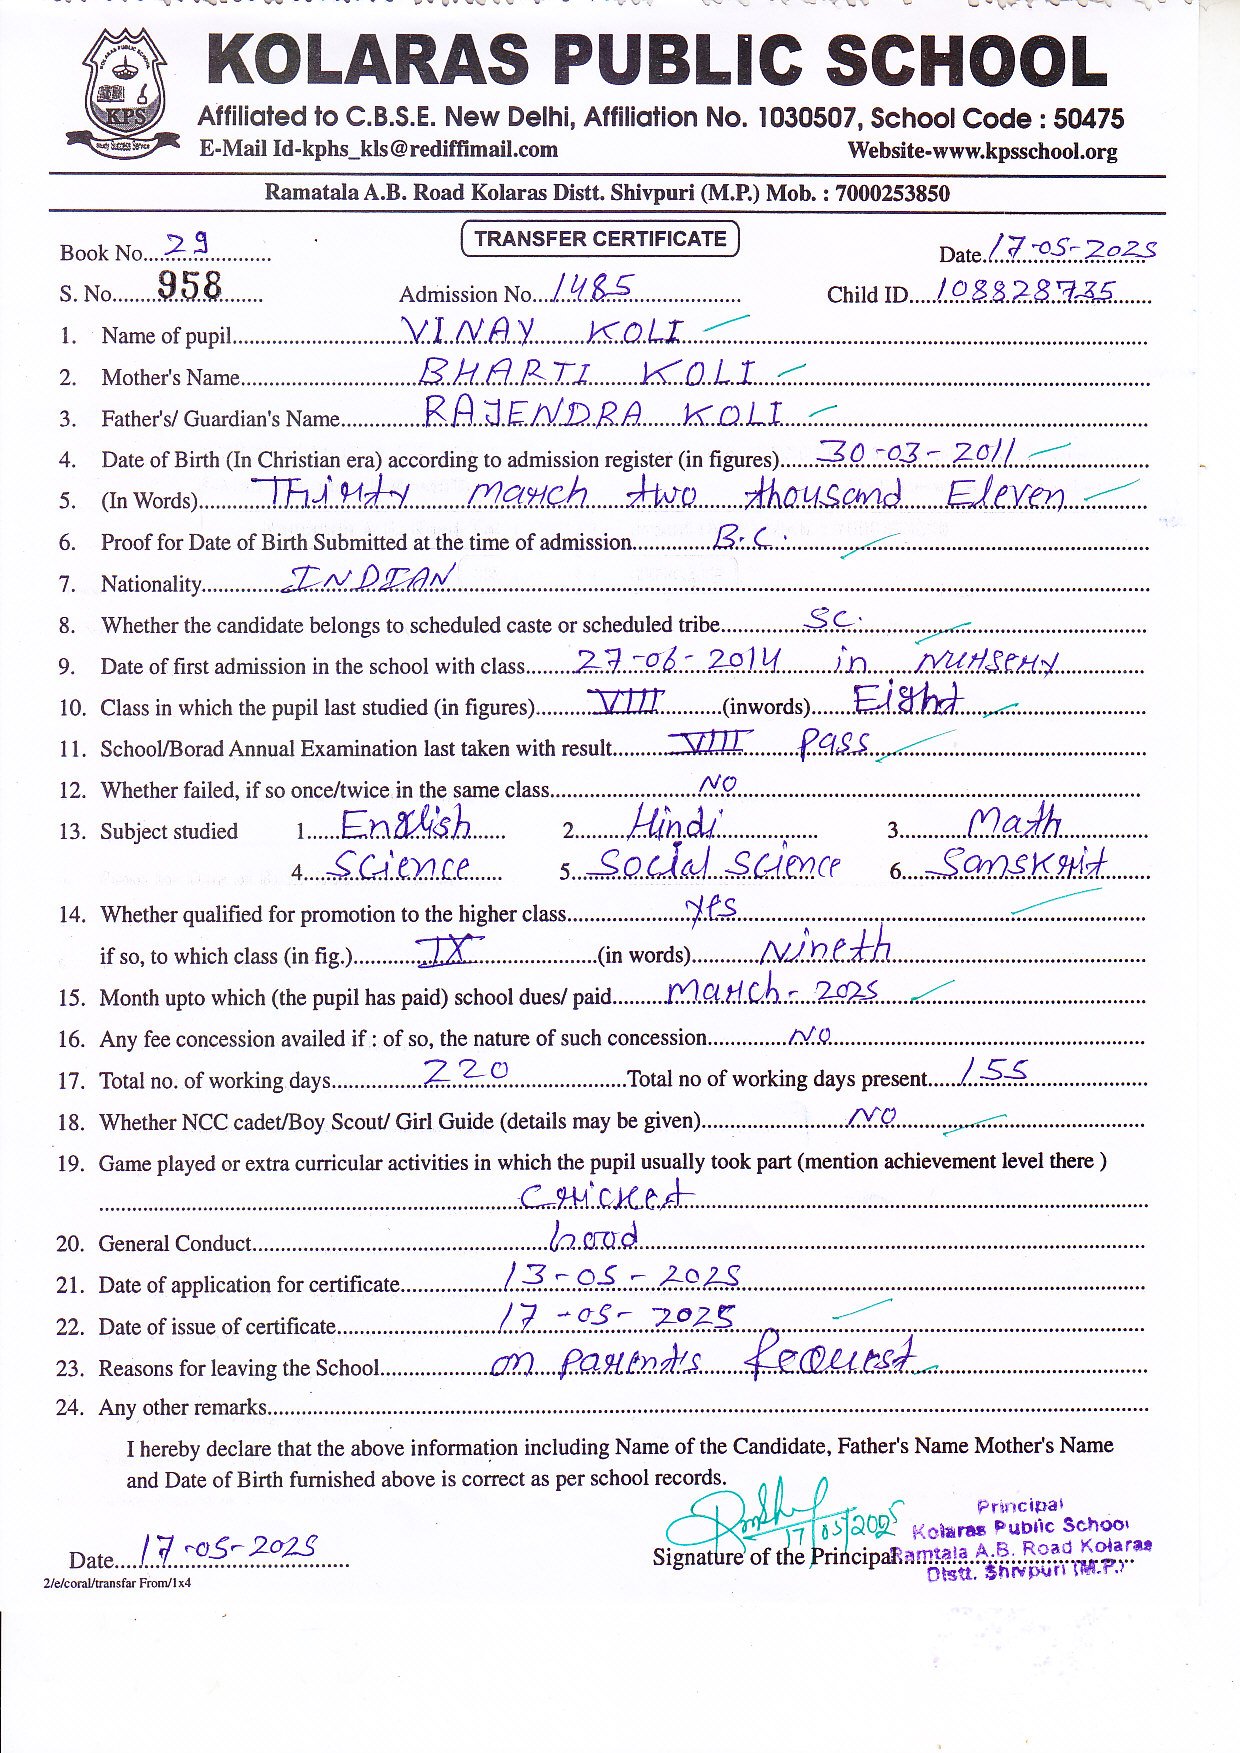 KOLARAS PUBLIC SCHOOL
Affiliated to C.B.S.E. New Delhi, Affiliation No. 1030507, School Code : 50475
E-Mail Id-kphs_kls@rediffimail.com Website-www.kpsschool.org
Ramatala A.B. Road Kolaras Distt. Shivpuri (M.P.) Mob. : 7000253850
KPS
TRANSFER CERTIFICATE
Book No. 29 Date. 17-05-2025
S. No. 958 Admission No. 1485 Child ID. 108828735
1. Name of pupil VINAY KOLI
2. Mother's Name BHARTI KOLI
3. Father's/ Guardian's Name RAJENDRA KOLI
4. Date of Birth (In Christian era) according to admission register (in figures) 30-03-2011
5. (In Words) Thirty march two thousand Eleven
6. Proof for Date of Birth Submitted at the time of admission B.C.
7. Nationality INDIAN
8. Whether the candidate belongs to scheduled caste or scheduled tribe SC.
9. Date of first admission in the school with class 27-06-2014 in Nursery
10. Class in which the pupil last studied (in figures) VIII (inwords) Eight
11. School/Borad Annual Examination last taken with result VIII Pass
12. Whether failed, if so once/twice in the same class NO
13. Subject studied 1. English 2. Hindi 3. Math
4. Science 5. Social Science 6. Sanskrit
14. Whether qualified for promotion to the higher class yes
if so, to which class (in fig.) IX (in words) Nineth
15. Month upto which (the pupil has paid) school dues/ paid march-2025
16. Any fee concession availed if : of so, the nature of such concession NO
17. Total no. of working days 220 Total no of working days present 155
18. Whether NCC cadet/Boy Scout/ Girl Guide (details may be given) NO
19. Game played or extra curricular activities in which the pupil usually took part (mention achievement level there )
Cricket
20. General Conduct Good
21. Date of application for certificate 13-05-2025
22. Date of issue of certificate 17-05-2025
23. Reasons for leaving the School on parent's Request
24. Any other remarks
I hereby declare that the above information including Name of the Candidate, Father's Name Mother's Name
and Date of Birth furnished above is correct as per school records.
17/05/2025
Principal
Kolaras Public School
Date. 17-05-2025 Signature of the Principal Ramtala A.B. Road Kolaras
Distt. Shivpuri (M.P.)
2/e/coral/transfar From/1x4